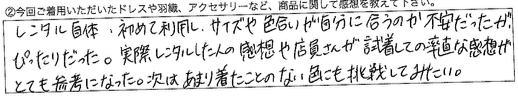 ②今回ご着用いただいたドレスや羽織、アクセサリーなど、商品に関して感想を教えて下さい。
レンタル自体、初めて利用し、サイズや色合いが自分に合うのか不安だったが、
ぴったりだった。実際レンタルした人の感想や店員さんが試着しての率直な感想が
とても参考になった。次はあまり着たことのない色にも挑戦してみたい。